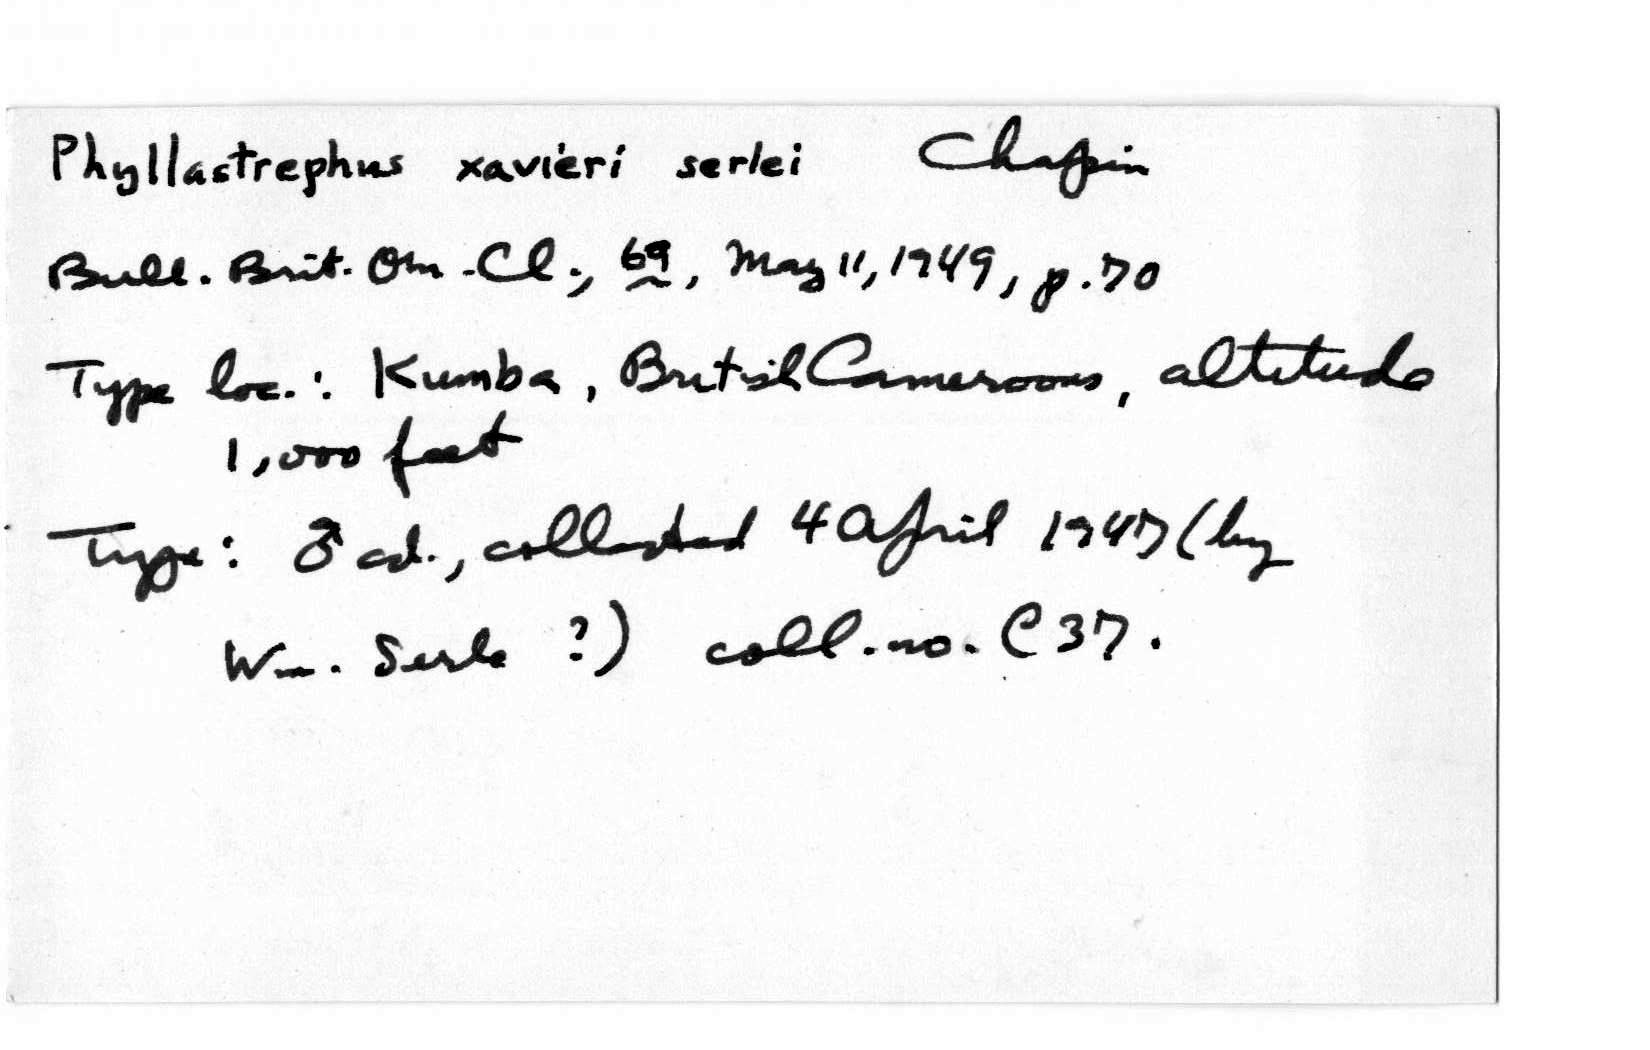 Phyllastrephus xavieri serlei Chapin
Bull. Brit. Orn. Cl., 69, May 11, 1949, p. 70
Type loc.: Kumba, British Cameroons, altitude
1,000 feet
Type: ♂ ad., collected 4 April 1947 (by
Wm. Serle ?) coll. no. C 37.